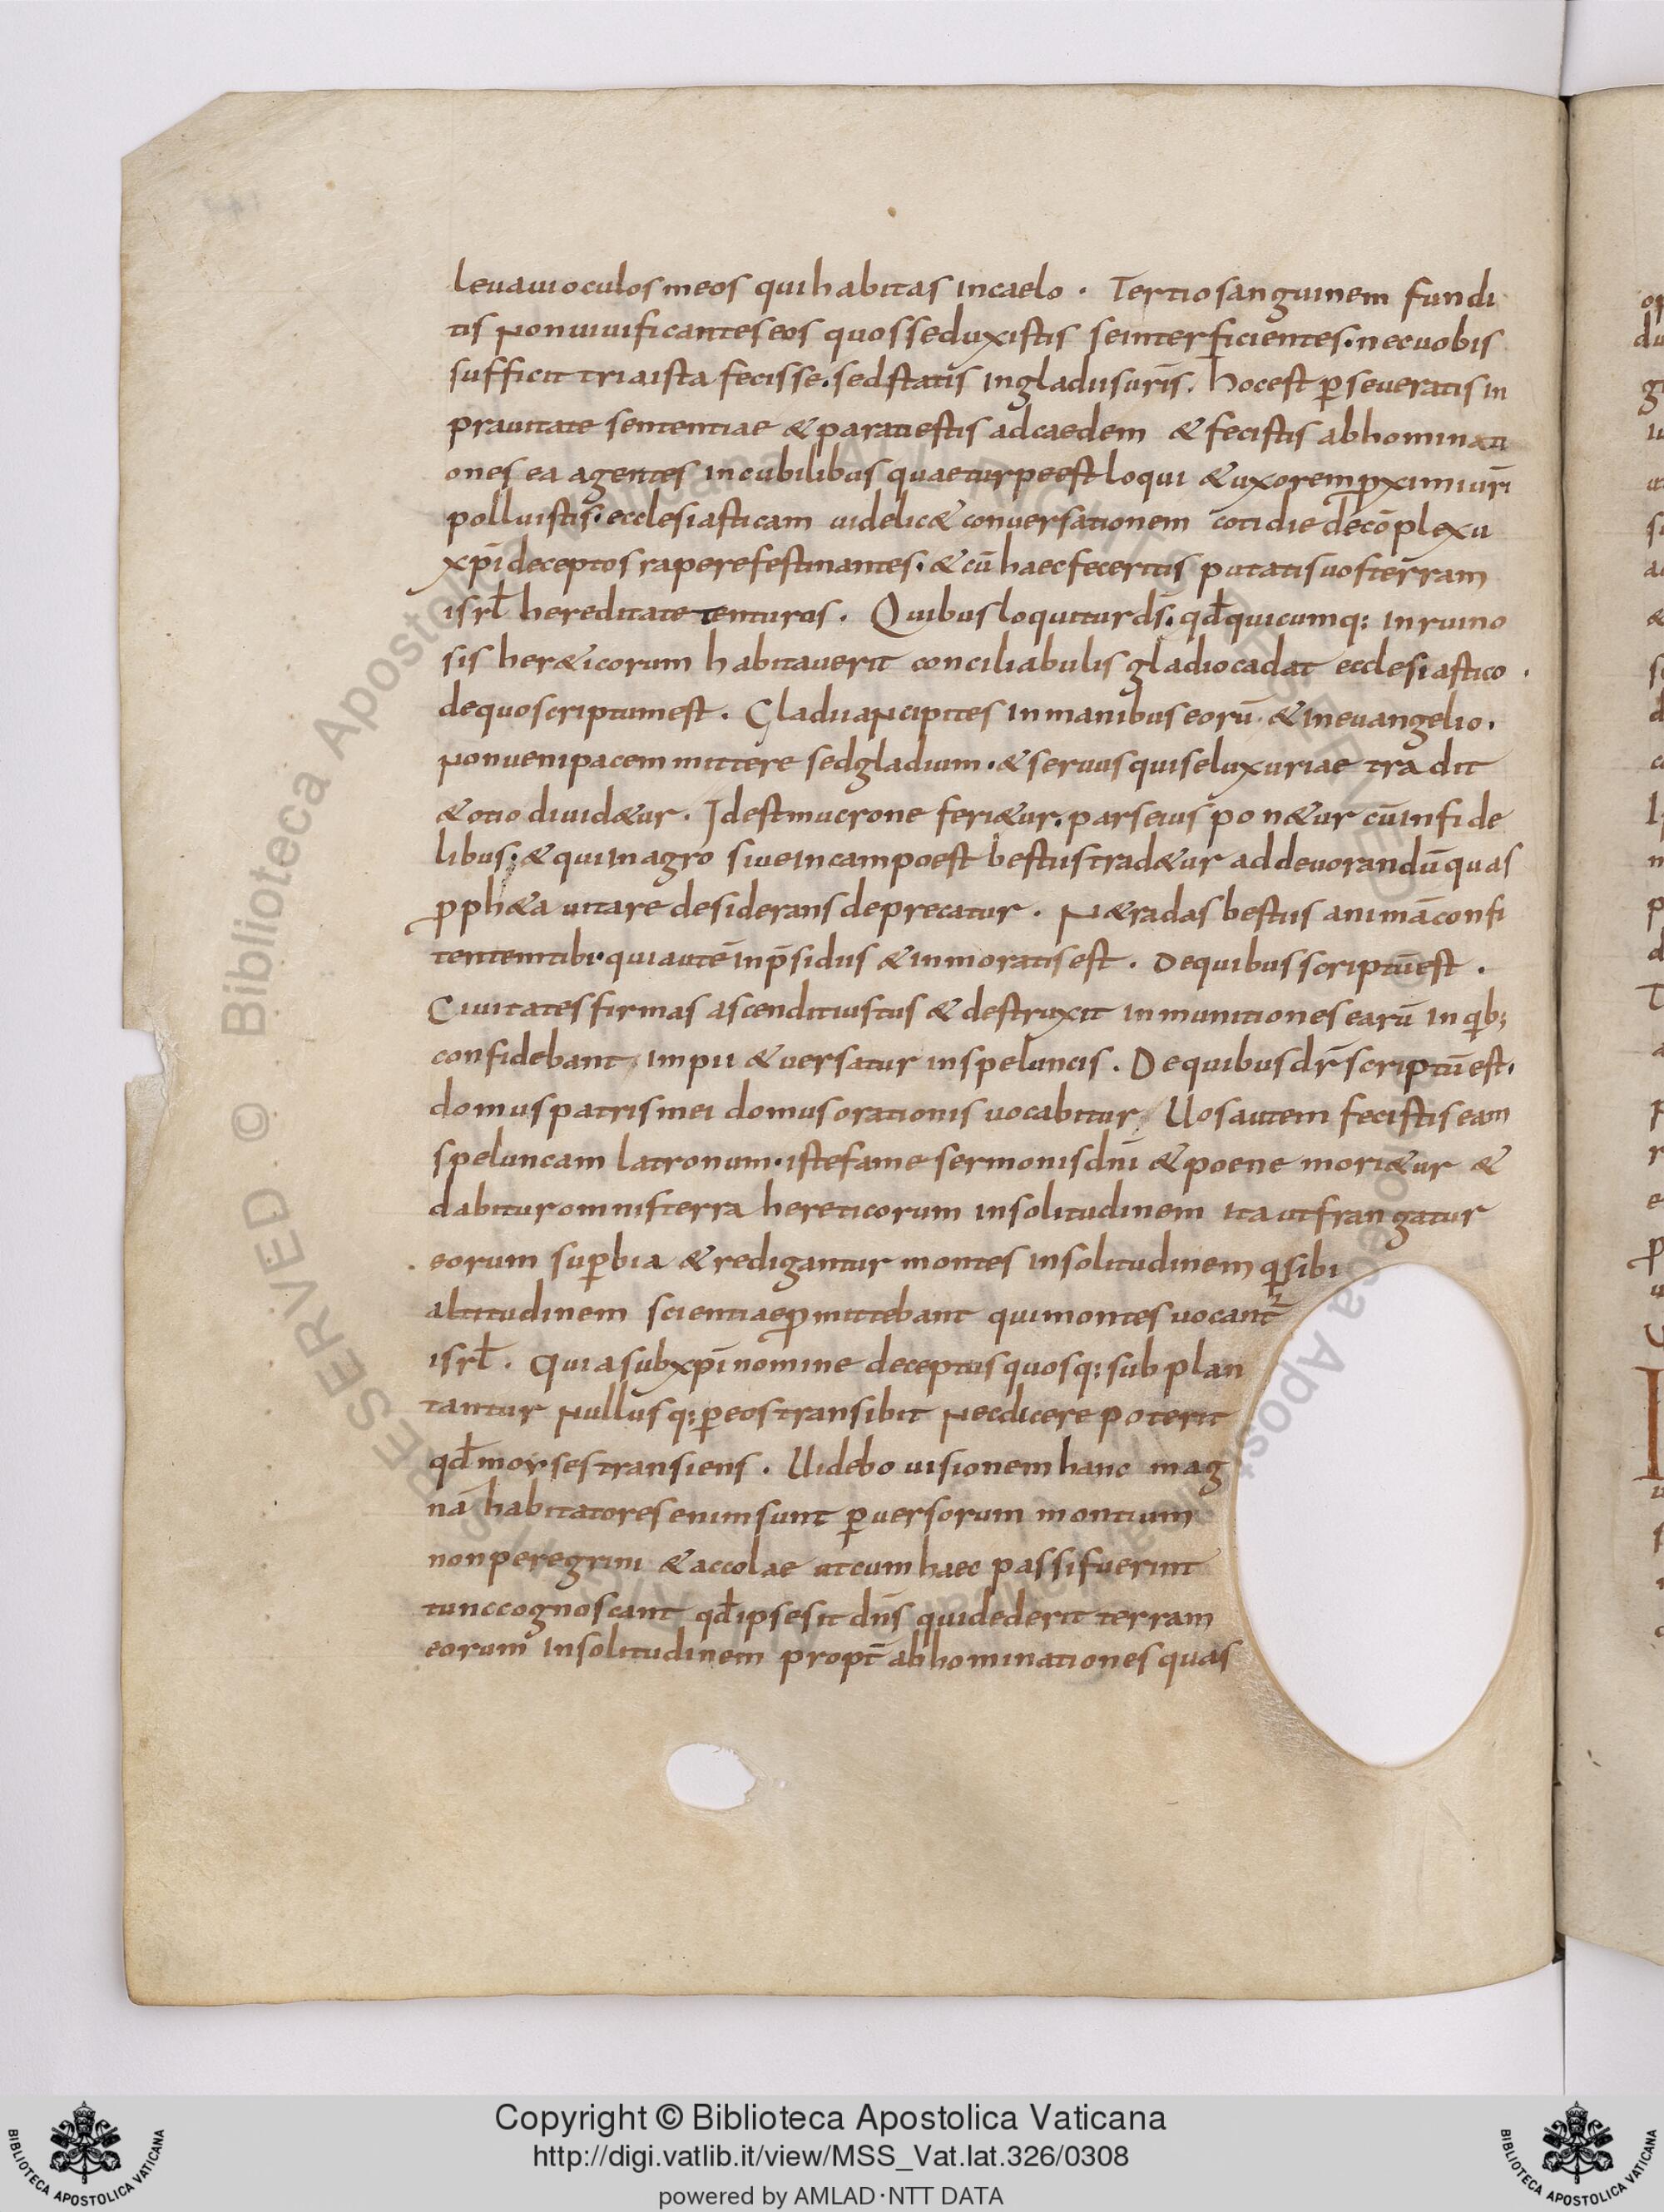 leuaui oculos meos qui habitas in caelo . Tertio sanguinem fundi
tis non uiuificantes eos quos seduxistis se interficientes . nec uobis
sufficit tria ista fecisse . sed statis in gladiis uris̄ . hoc est p̱seueratis in
prauitate sententiae & parati estis ad caedem & fecistis abhominati
ones ea agentes in cubilibus quae turpe est loqui & uxorem p̱ximi uri̅
polluistis . ecclesiasticam uidelic& conuersationem cotidie de co̅plexu
xp̅i deceptos rapere festinantes . & cu̅ haec feceritis putatis uos terram
isrl̅ hereditate tenturos . Quibus loquitur ds̅ . qd̅ quicumq; in ruino
sis her&icorum habitauerit conciliabulis gladio cadat ecclesiastico .
de quo scriptum est . Gladii ancipites in manibus eoru̅ . & in euangelio .
Non ueni pacem mittere sed gladium . & seruus qui se luxuriae tradit
& otio diuid&ur . Id est mucrone feri&ur . pars eius pon&ur cu̅ infide
libus . & qui in agro siue in campo est bestiis trad&ur ad deuorandu̅ quas
p̱ph&a uitare desiderans deprecatur . N& radas bestiis anima̅ confi
tentem tibi . qui aute̅ in p̅sidiis & in moratis est . De quibus scriptu̅ est .
Ciuitates firmas ascendit iustus & destruxit inmunitiones earu̅ in qib;
confidebant impii & uersatur in speluncis . De quibus dr̅ scriptu̅ est .
domus patris mei domus orationis uocabitur Uos autem fecistis eam
speluncam latronum . iste fame sermonis dn̅i & poene mori&ur &
dabitur omnis terra hereticorum in solitudinem ita ut frangatur
eorum sup̱bia & redigantur montes in solitudinem qi sibi
altitudinem scientiae p̱mittebant qui montes uocant̅
isrl̅ . Quia sub xp̅i nomine deceptis quosq; subplan
tantur nullusq; p̱ eos transibit nec dicere poterit
qd̅ moyses transiens . Uidebo uisionem hanc mag
na̅ habitatores enim sunt p̱uersorum montium
non peregrini & accolae ut cum haec passi fuerint
tunc cognoscant qd̅ ipse sit dn̅s qui dederit terram
eorum in solitudinem propt̅ abhominationes quas
Copyright © Biblioteca Apostolica Vaticana
http://digi.vatlib.it/view/MSS_Vat.lat.326/0308
powered by AMLAD·NTT DATA
BIBLIOTECA APOSTOLICA VATICANA
BIBLIOTECA APOSTOLICA VATICANA